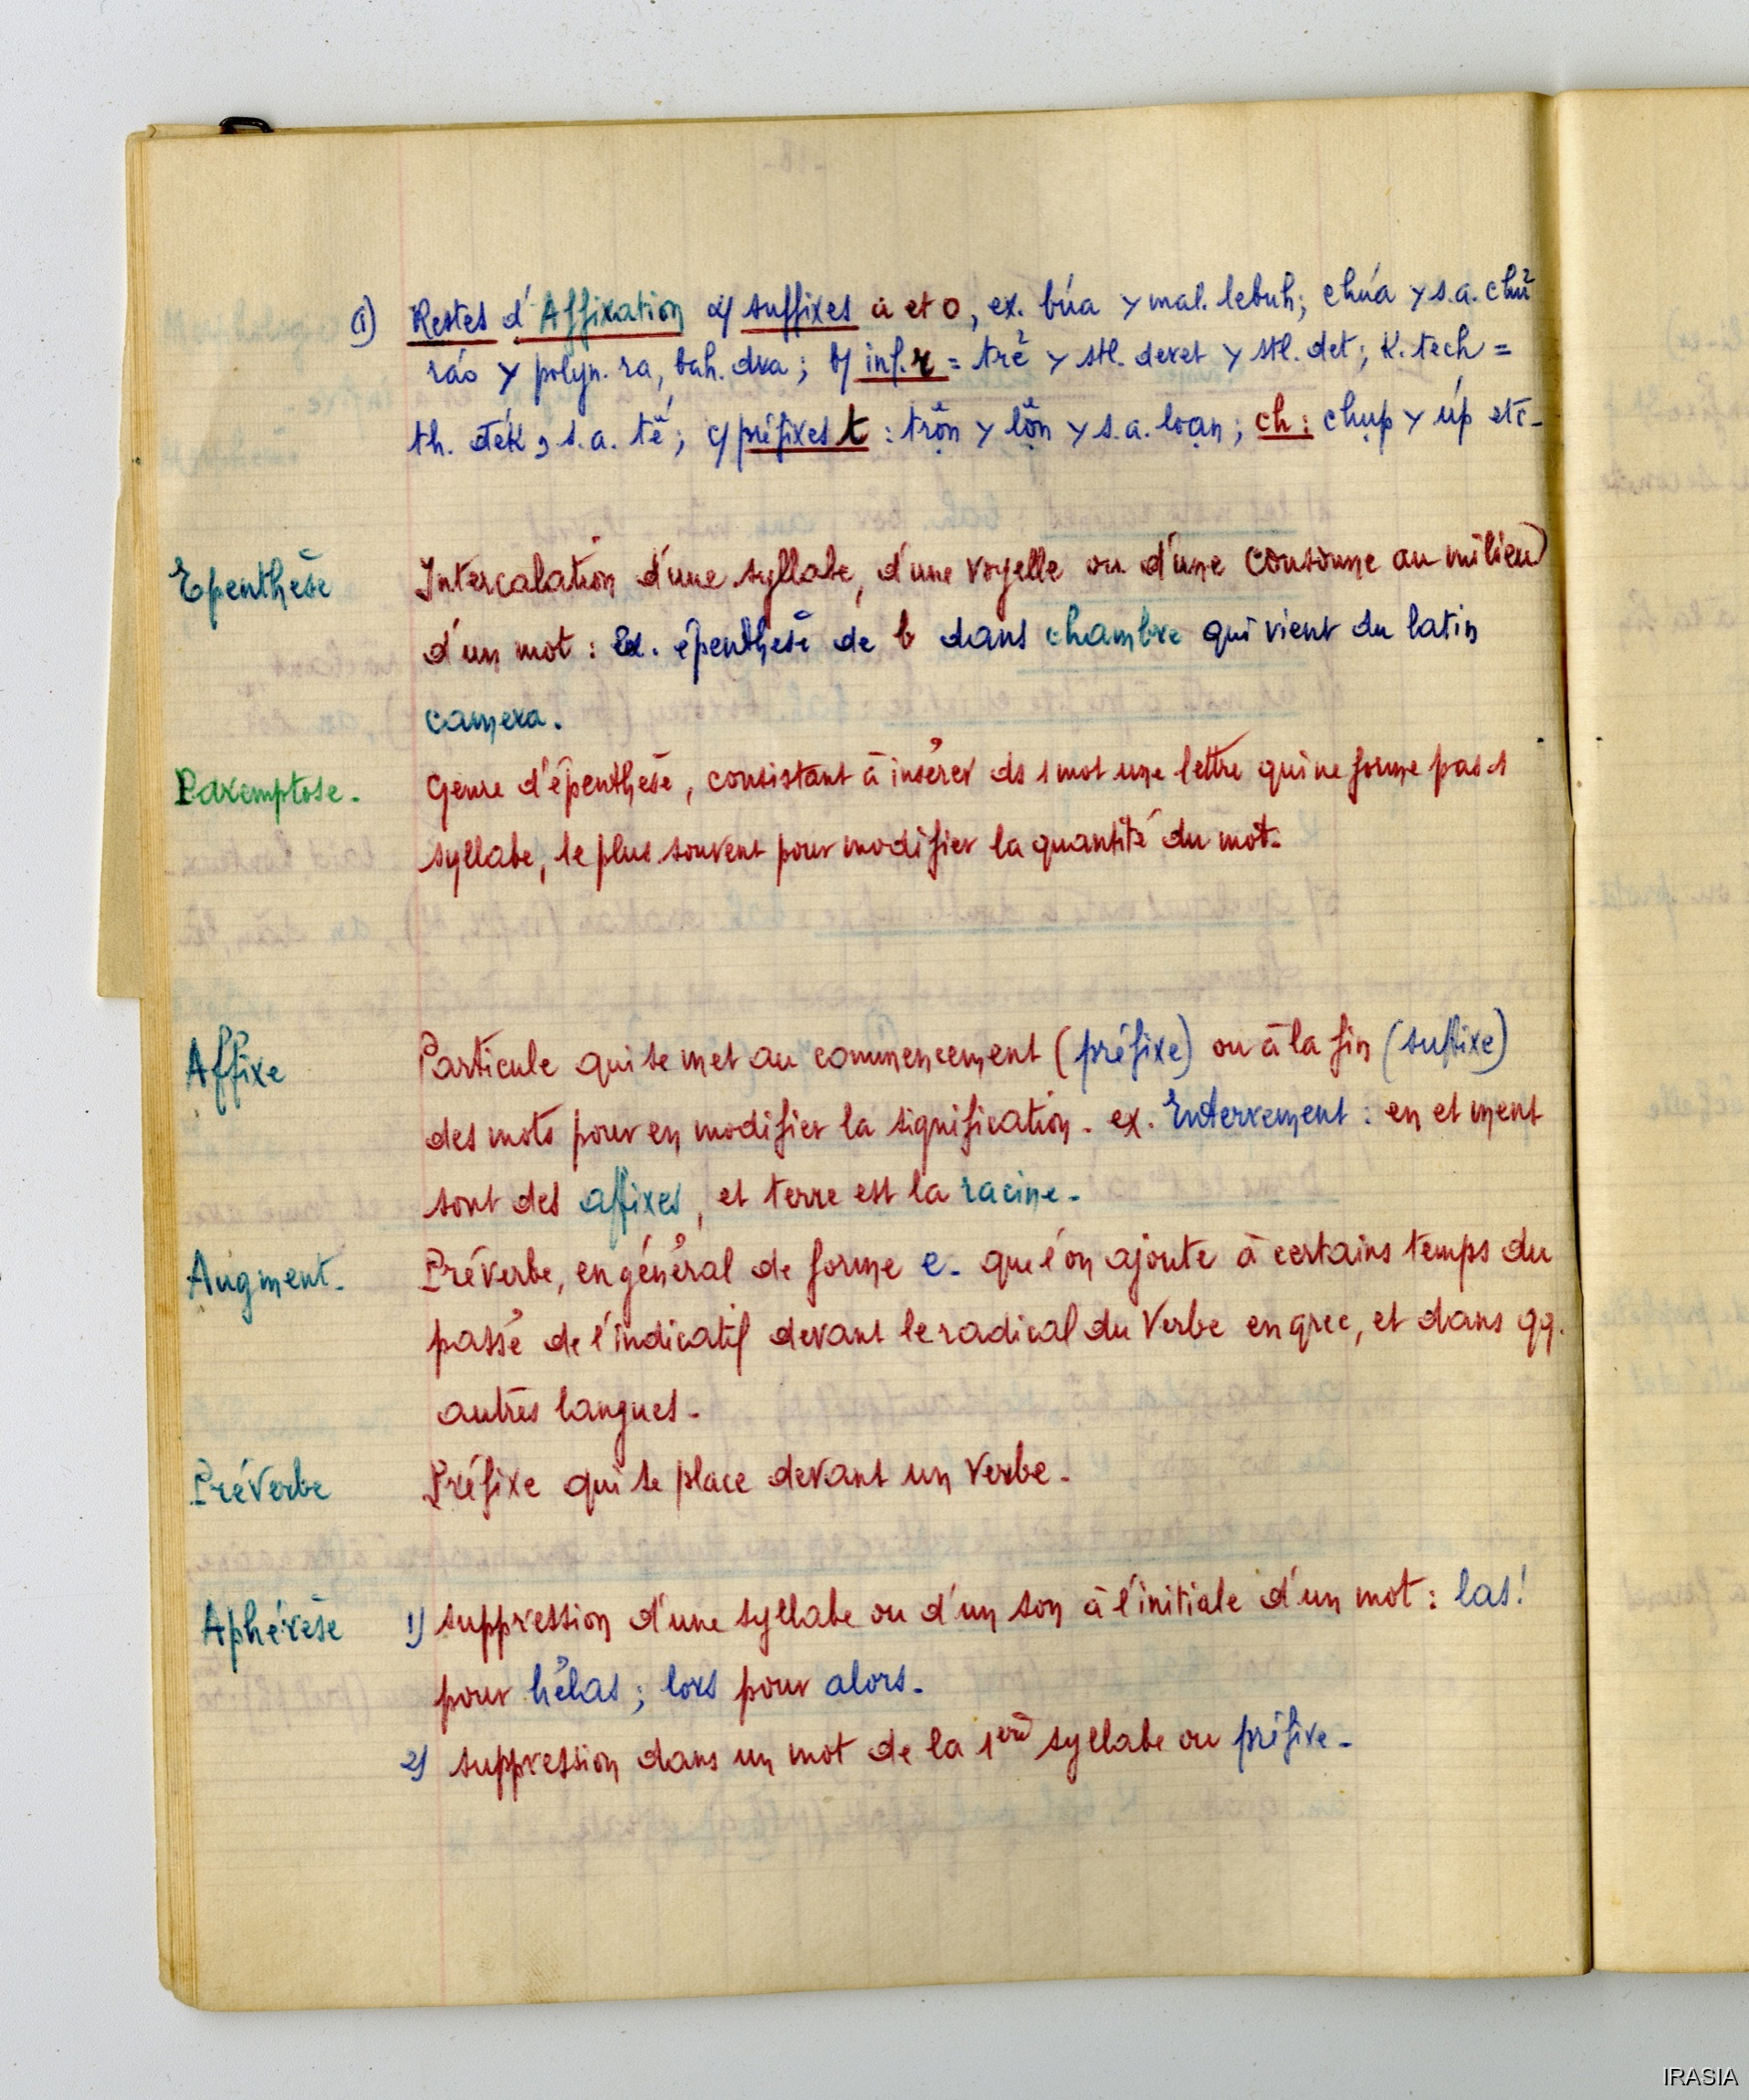 (1) Restes d'Affixation a/ suffixes a et o, ex. búa > mal. lebuh; chúa > s.a. chủ
ráo > polyn. ra, bah. dra; b/ inf. r = trẻ > stl. deret > stl. det; K. tech =
th. dék, s.a. tế; c/ préfixes t : trộn > lộn > s.a. loạn; ch : chụp > úp etc-
Epenthèse Intercalation d'une syllabe, d'une voyelle ou d'une consonne au milieu
d'un mot : Ex. épenthèse de b dans chambre qui vient du latin
camera.
Paremptose. Genre d'épenthèse, consistant à insérer ds 1 mot une lettre qui ne forme pas 1
syllabe, le plus souvent pour modifier la quantité du mot.
Affixe Particule qui se met au commencement (préfixe) ou à la fin (suffixe)
des mots pour en modifier la signification. ex. Enterrement : en et ment
sont des affixes, et terre est la racine.
Augment. Préverbe, en général de forme e. que l'on ajoute à certains temps du
passé de l'indicatif devant le radical du Verbe en grec, et dans qq.
autres langues.
Préverbe Préfixe qui se place devant un Verbe.
Aphérèse 1) suppression d'une syllabe ou d'un son à l'initiale d'un mot : las!
pour hélas ; lors pour alors.
2) suppression dans un mot de la 1ère syllabe ou préfixe.
IRASIA